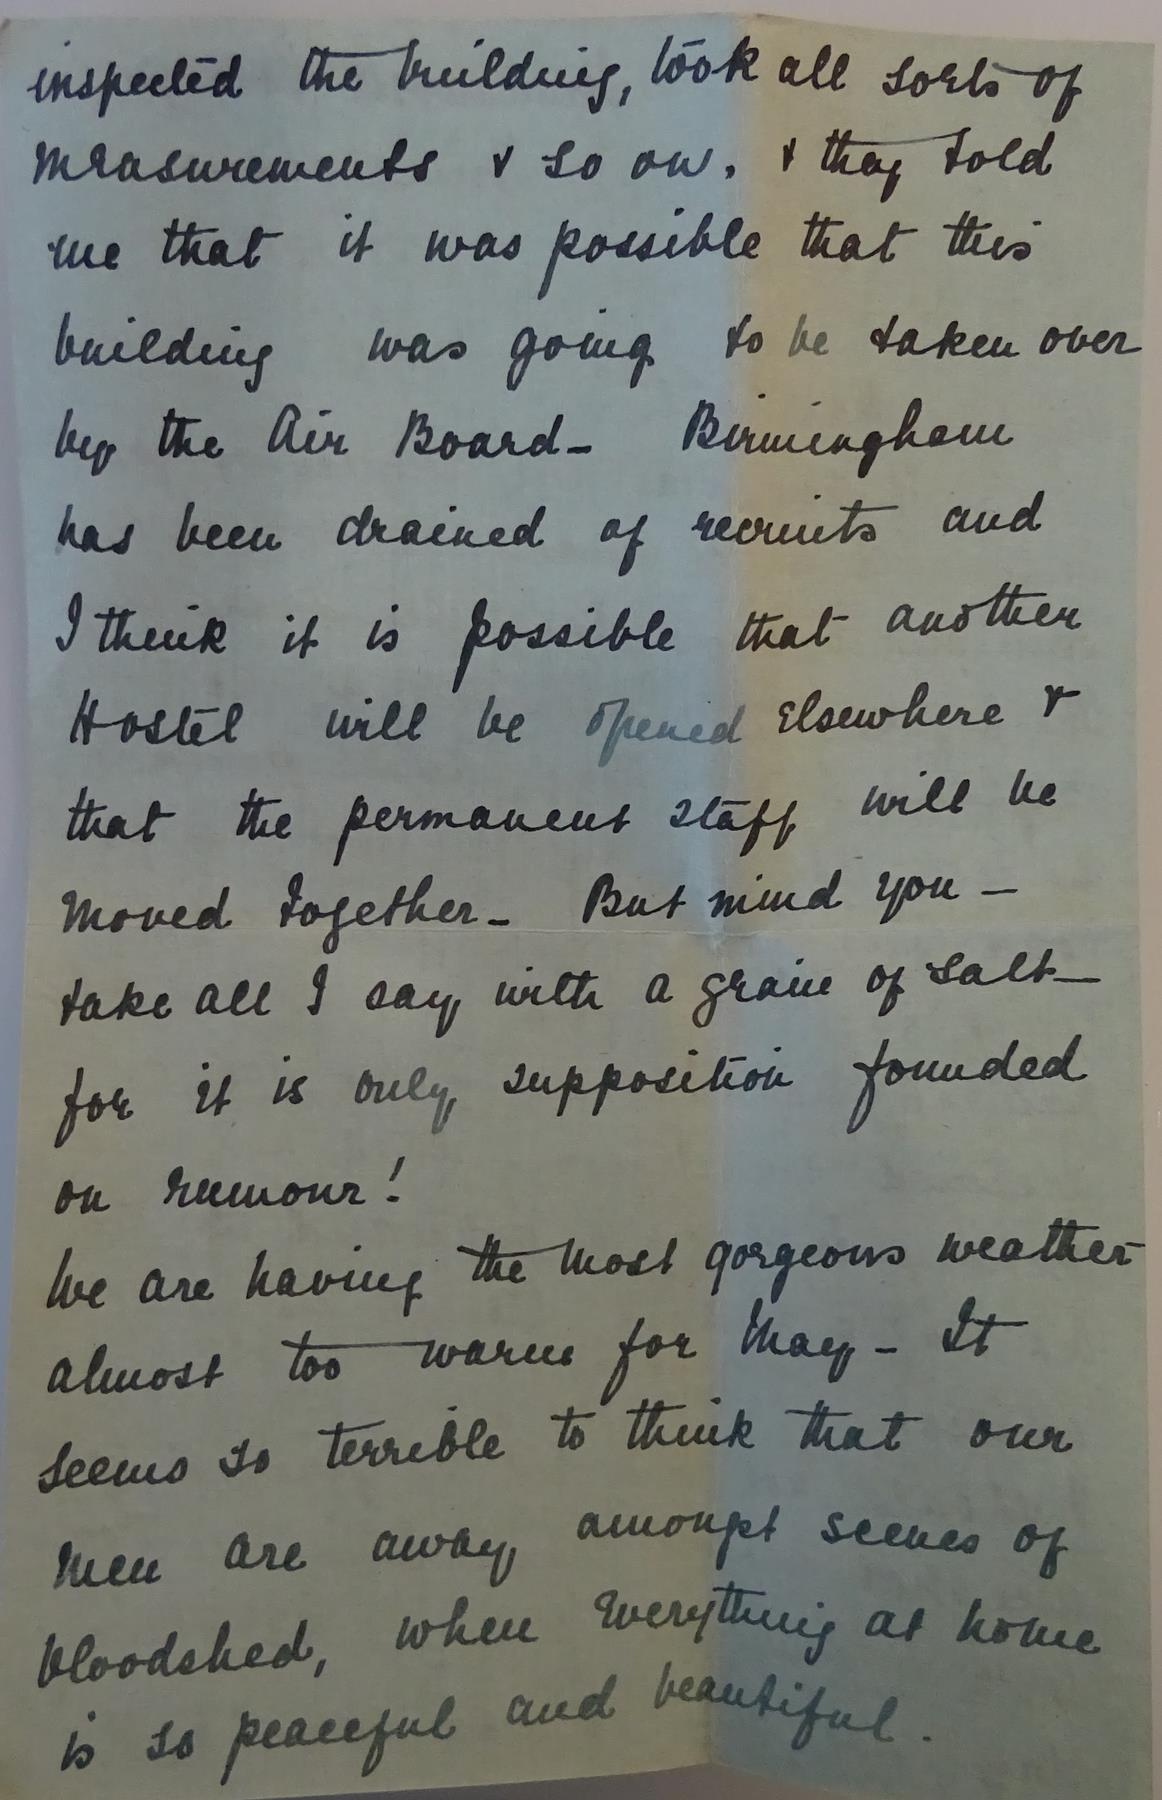 inspected the building, took all sorts of
measurements & so on. & they told
me that it was possible that this
building was going to be taken over
by the Air Board - Birmingham
has been drained of recruits and
I think it is possible that another
Hostel will be opened elsewhere &
that the permanent staff will be
moved together - But mind you -
take all I say with a grain of salt -
for it is only supposition founded
on rumour!
We are having the most gorgeous weather
almost too warm for May - It
seems so terrible to think that our
men are away amongst scenes of
bloodshed, when everything at home
is so peaceful and beautiful.